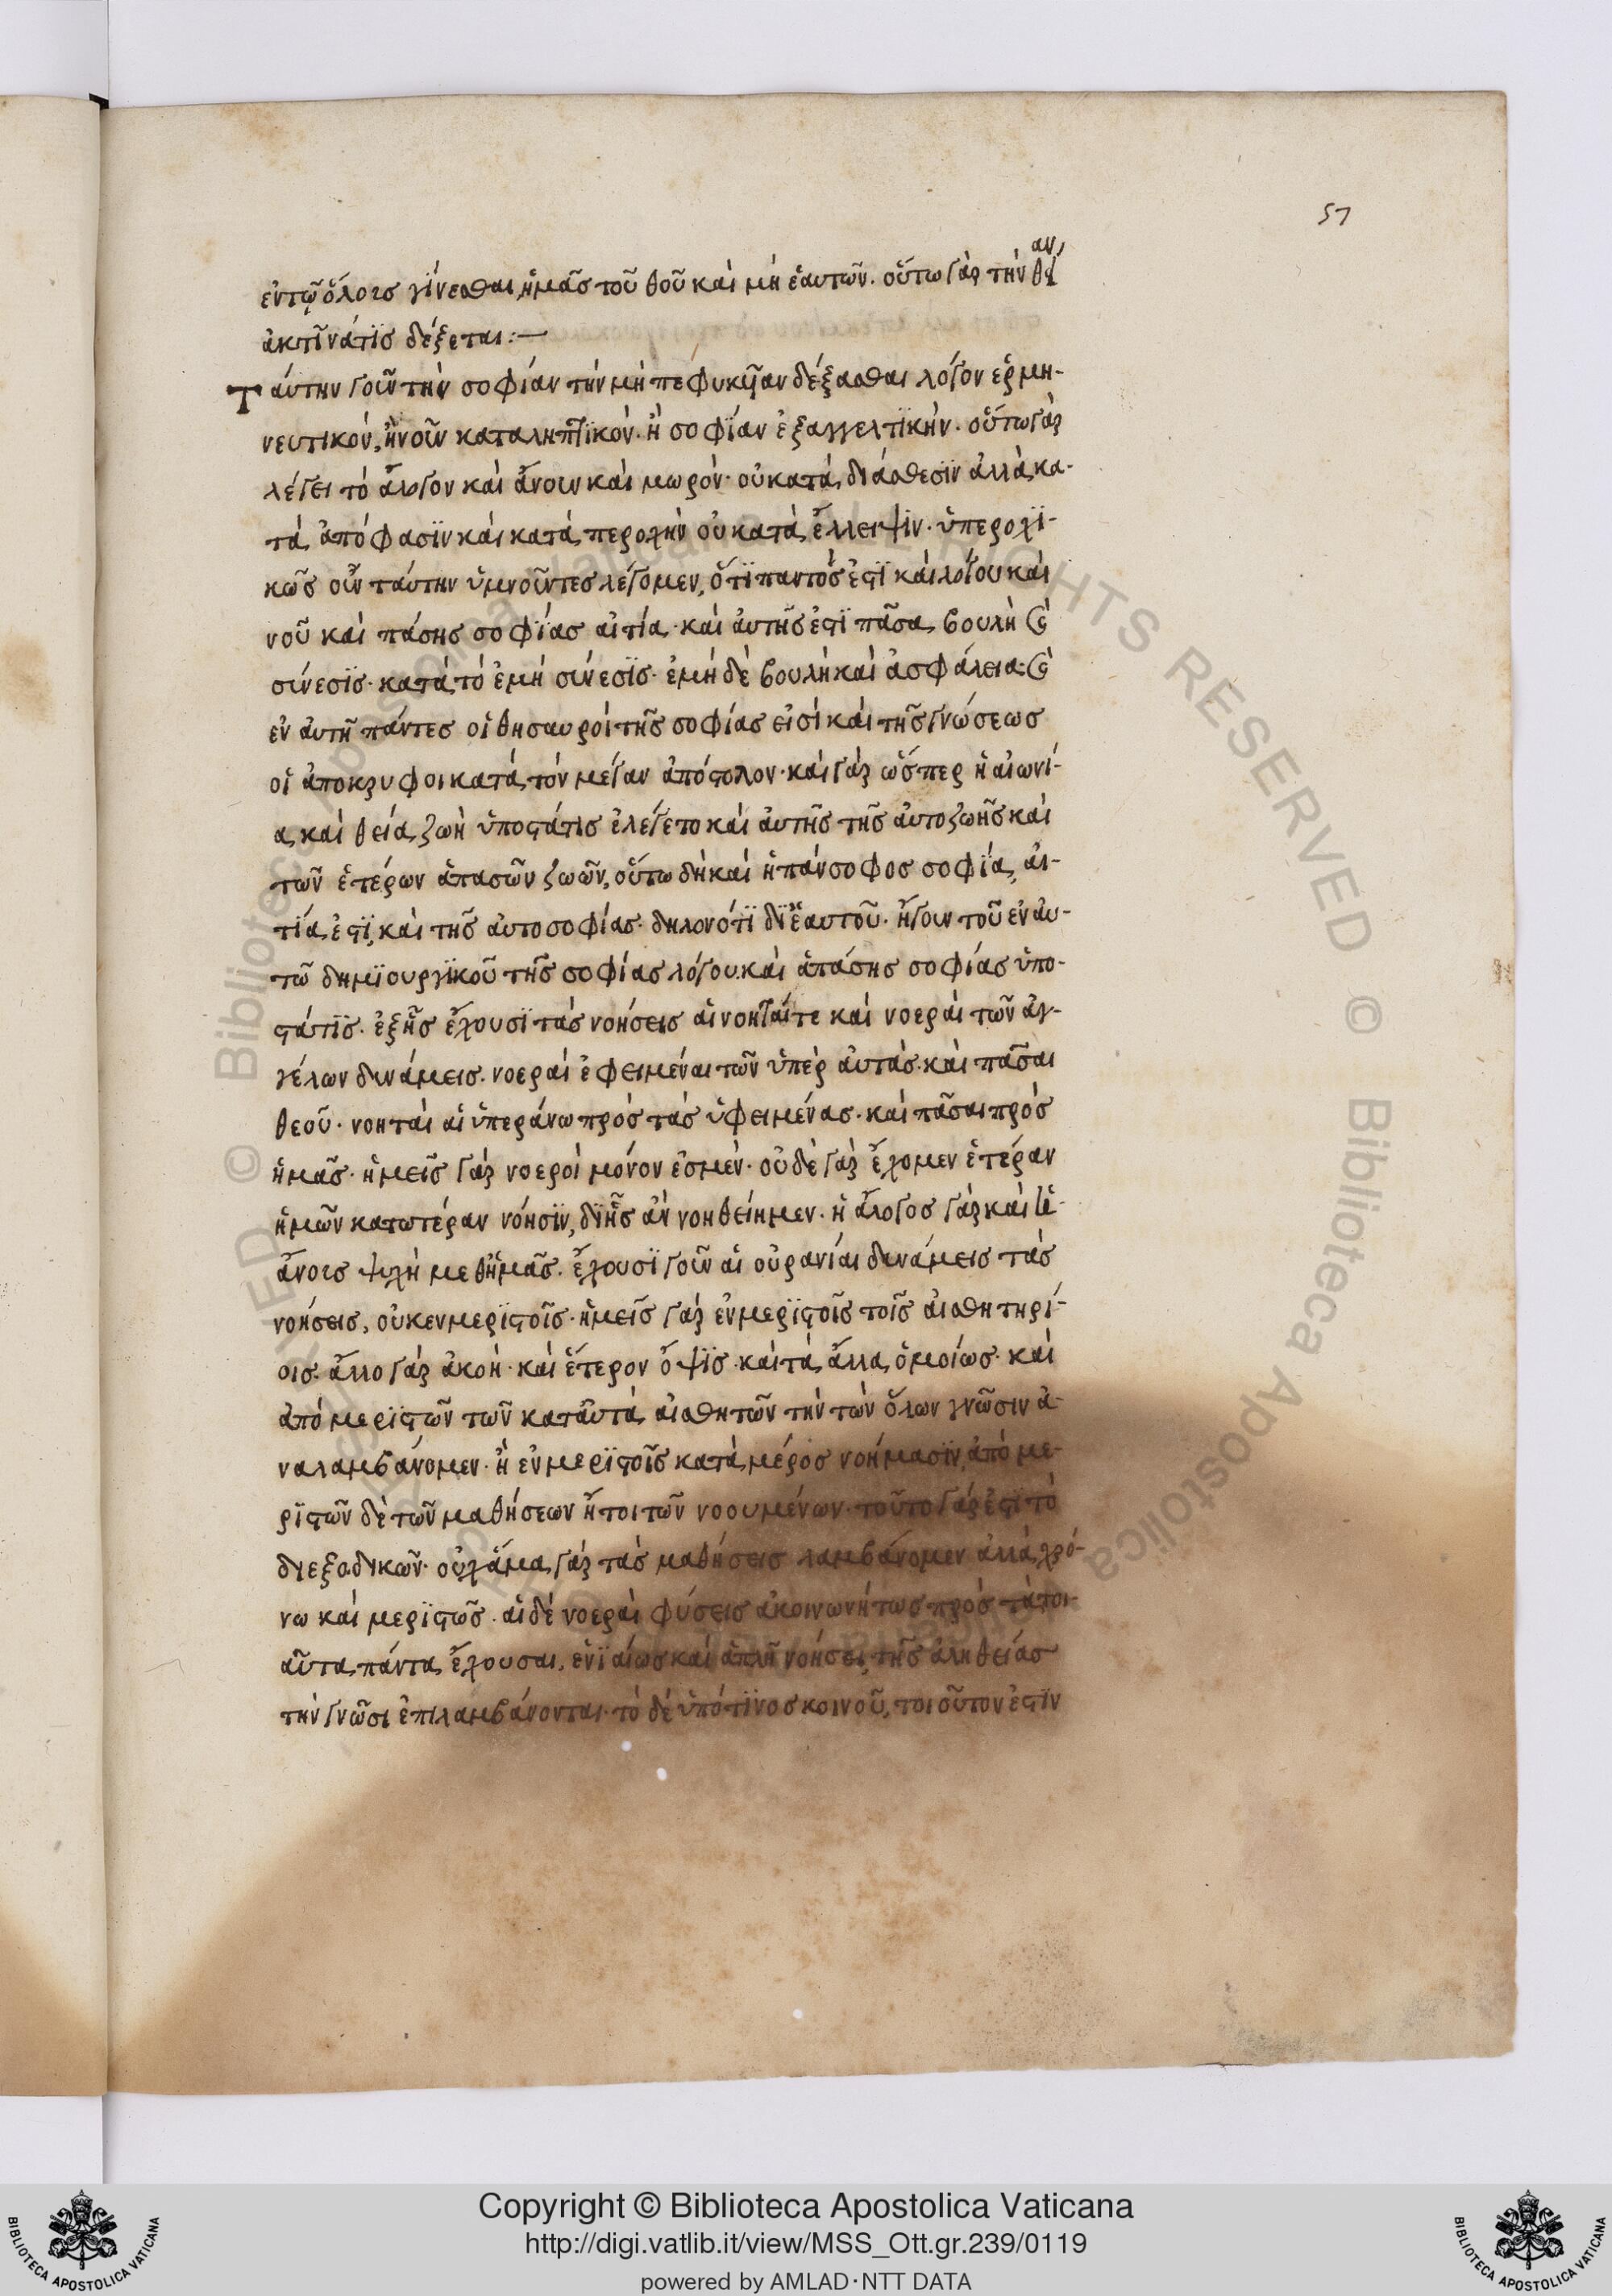 57
ἐντῶ ὅλοις γίνεσθαι ἡμᾶς τοῦ θοῦ καὶ μὴ ἑαυτῶν. οὕτω γὰρ τὴν
ἀκτῖνάτϊς δέξεται :—
Ταύτην γοῦν τὴν σοφίαν τὴν μὴ πεφυκῦαν δέξασθαι λόγον ἑρμη-
νευτικόν, ἢ νοῦν καταληπτϊκόν. ἢ σοφϊαν ἐξαγγελτϊκήν. οὕτω γὰρ
λέγει τὸ ἄλογον καὶ ἄνουν καὶ μωρόν. οὐ κατὰ διάθεσϊν ἀλλὰ κα-
τὰ ἀπόφασϊν καὶ κατὰ περοχὴν οὐ κατὰ ἔλλειψϊν. ὑπεροχϊ-
κῶς οὖν ταύτην ὑμνοῦντες λέγομεν, ὅτϊ παντός ἐστϊ καὶ λόγου καὶ
νοῦ καὶ πάσης σοφϊας αἰτία. καὶ αὐτῆς ἐστϊ πᾶσα βουλὴ καὶ
σύνεσϊς. κατὰ τὸ ἐμὴ σύνεσϊς. ἐμὴ δὲ βουλὴ καὶ ἀσφάλεια. καὶ
ἐν αὐτῆ πάντες οἱ θησαυροὶ τῆς σοφίας εἰσὶ καὶ τῆς γνώσεως
οἱ ἀποκρυφοι κατὰ τὸν μέγαν ἀπόστολον. καὶ γὰρ ὥσπερ ἡ αἰωνί-
α καὶ θεία ζωὴ ὑποστάτις ἐλέγετο καὶ αὐτῆς τῆς αὐτοζωῆς καὶ
τῶν ἑτέρων ἁπασῶν ζωῶν, οὕτω δὴ καὶ ἡ πάνσοφος σοφϊα, αἰ-
τία ἐστϊ, καὶ τῆς αὐτοσοφίας. δηλονότϊ δϊ ἑαυτοῦ. ἤγουν τοῦ ἐν αυ-
τῶ δημϊουργϊκοῦ τῆς σοφίας λόγου. καὶ ἁπάσης σοφίας ὑπο-
στάτϊς. ἐξῆς ἔχουσϊ τὰς νοήσεις αἱ νοηταί τε καὶ νοεραὶ τῶν ἀγ-
γέλων δυνάμεις. νοεραὶ ἐφειμέναι τῶν ὑπὲρ αὐτάς. καὶ πᾶσαι
θεοῦ. νοηταὶ αἱ ὑπεράνω πρὸς τὰς ὑφειμένας. καὶ πᾶσαι πρὸς
ἡμᾶς. ἡμεῖς γὰρ νοεροὶ μόνον ἐσμέν. οὐδὲ γὰρ ἔχομεν ἑτέραν
ἡμῶν κατωτέραν νόησϊν, δϊ ἧς ἂν νοηθείημεν. ἡ ἄλογος γὰρ καὶ ἡ
ἄνοις ψυχὴ μεθ ἡμᾶς. ἔχουσϊ γοῦν αἱ οὐρανίαι δυνάμεις τὰς
νοήσεις, οὐκ ενμερϊστοῖς. ἡμεῖς γὰρ ἐν μερϊστοῖς τοῖς αἰσθητηρί-
οις. ἄλλο γὰρ ἀκοή. καὶ ἕτερον ὄψϊς. καὶ τὰ ἄλλα ὁμοίως. καὶ
ἀπὸ μερϊστῶν τῶν κατ αὐτὰ αἰσθητῶν τὴν τῶν ὅλων γνῶσιν ἀ-
ναλαμβάνομεν. ἢ ἐν μερϊστοῖς κατὰ μέρος νοήμασϊν, ἀπὸ με-
ρϊστῶν δὲ τῶν μαθήσεων ἤτοι τῶν νοουμένων. τοῦτο γάρ ἐστϊ τὸ
διεξοδικῶν. οὐχ ἅμα γὰρ τὰς μαθήσεις λαμβάνομεν ἀλλὰ χρό-
νω καὶ μερϊστῶς. αἱ δὲ νοεραὶ φύσεις ἀκοινωνήτως πρὸς τὰ τοι-
αῦτα πάντα ἔχουσαι, ἑνϊαίως καὶ ἁπλῆ νοήσει, τῆς ἀληθείας
τὴν γνῶσι ἐπιλαμβάνονται. τὸ δὲ ὑπό τϊνος κοινοῦ, τοιοῦτον ἐστϊν
Copyright © Biblioteca Apostolica Vaticana
http://digi.vatlib.it/view/MSS_Ott.gr.239/0119
powered by AMLAD·NTT DATA